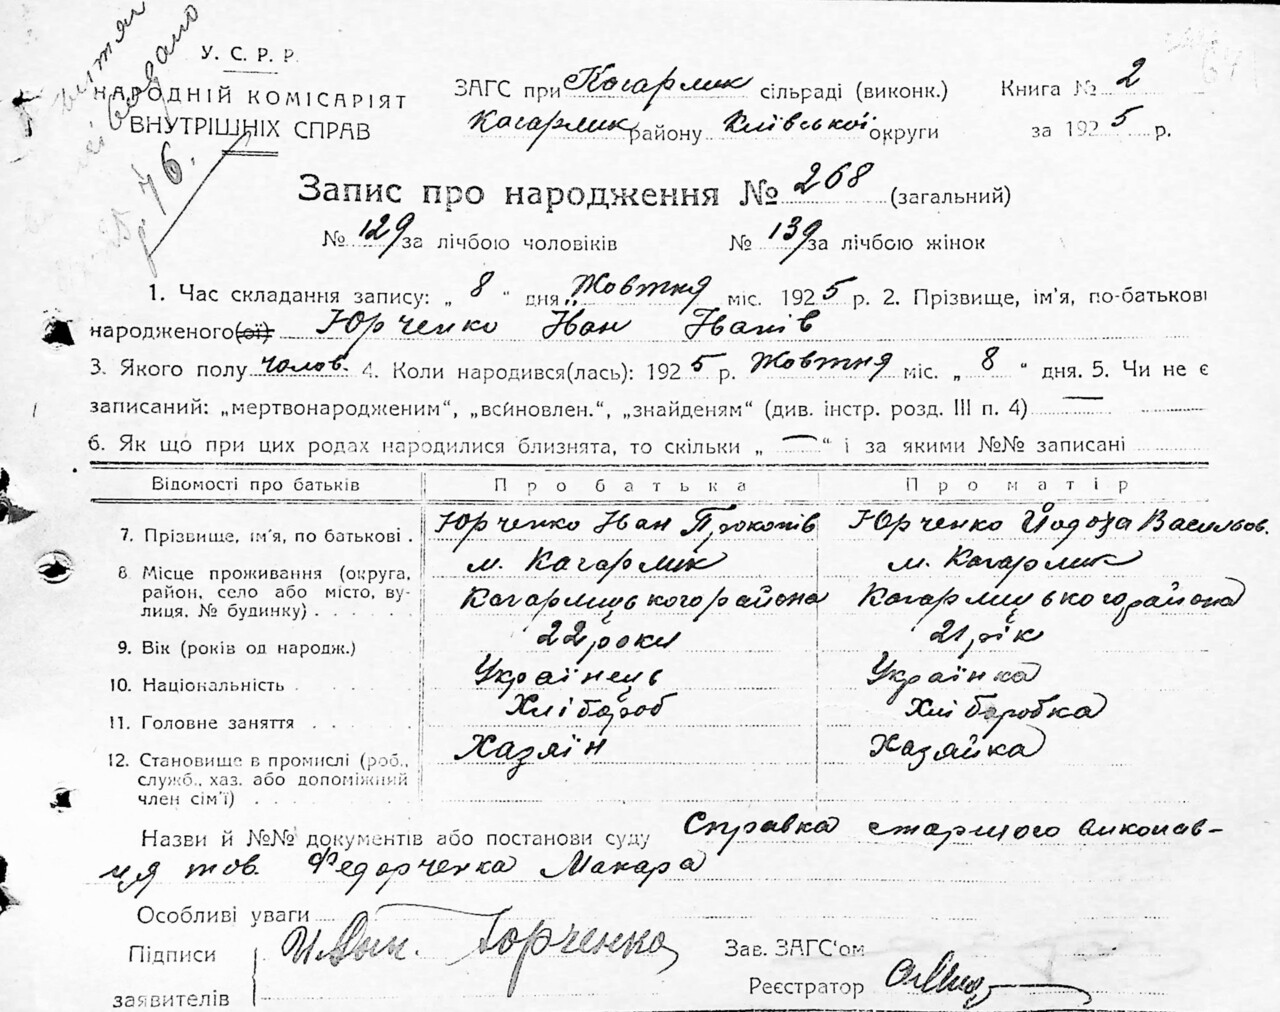 У. С. Р. Р.
НАРОДНІЙ КОМІСАРІЯТ
ВНУТРІШНІХ СПРАВ
видано
76.
ЗАГС при Кагарлик сільраді (виконк.) Книга № 2
Кагарлик району Київської округи за 1925 р.
Запис про народження № 268 (загальний)
№ 129 за лічбою чоловіків № 139 за лічбою жінок
1. Час складання запису: „ 8 “ дня „ Жовтня міс. 1925 р. 2. Прізвище, ім'я, по-батькові
народженого(ої) Юрченко Іван Іванів
3. Якого полу чолов. 4. Коли народився(лась): 1925 р. Жовтня міс. „ 8 “ дня. 5. Чи не є
записаний: „мертвонародженим“, „всиновлен.“, „знайденям“ (див. інстр. розд. III п. 4) —
6. Як що при цих родах народилися близнята, то скільки „ — “ і за якими №№ записані
Відомості про батьків Про батька Про матір
7. Прізвище, ім'я, по батькові . Юрченко Іван Прокопів Юрченко Йодоха Васильов.
м. Кагарлик м. Кагарлик
8 Місце проживання (округа,
район, село або місто, ву-
лиця, № будинку) . . . . Кагарлицького района Кагарлицького района
9. Вік (років од народж.) 22 роки 21 рік
10. Національність . . . . Українець Українка
11. Головне заняття . . . Хлібороб Хліборобка
12. Становище в промислі (роб., Хазяїн Хазяйка
служб., хаз. або допоміжний
член сім'ї) . . . . . .
Назви й №№ документів або постанови суду Справка старшого виконав-
ця тов. Федорченка Макара
Особливі уваги
Підписи Юрченко Зав. ЗАГС'ом
заявителів Реєстратор